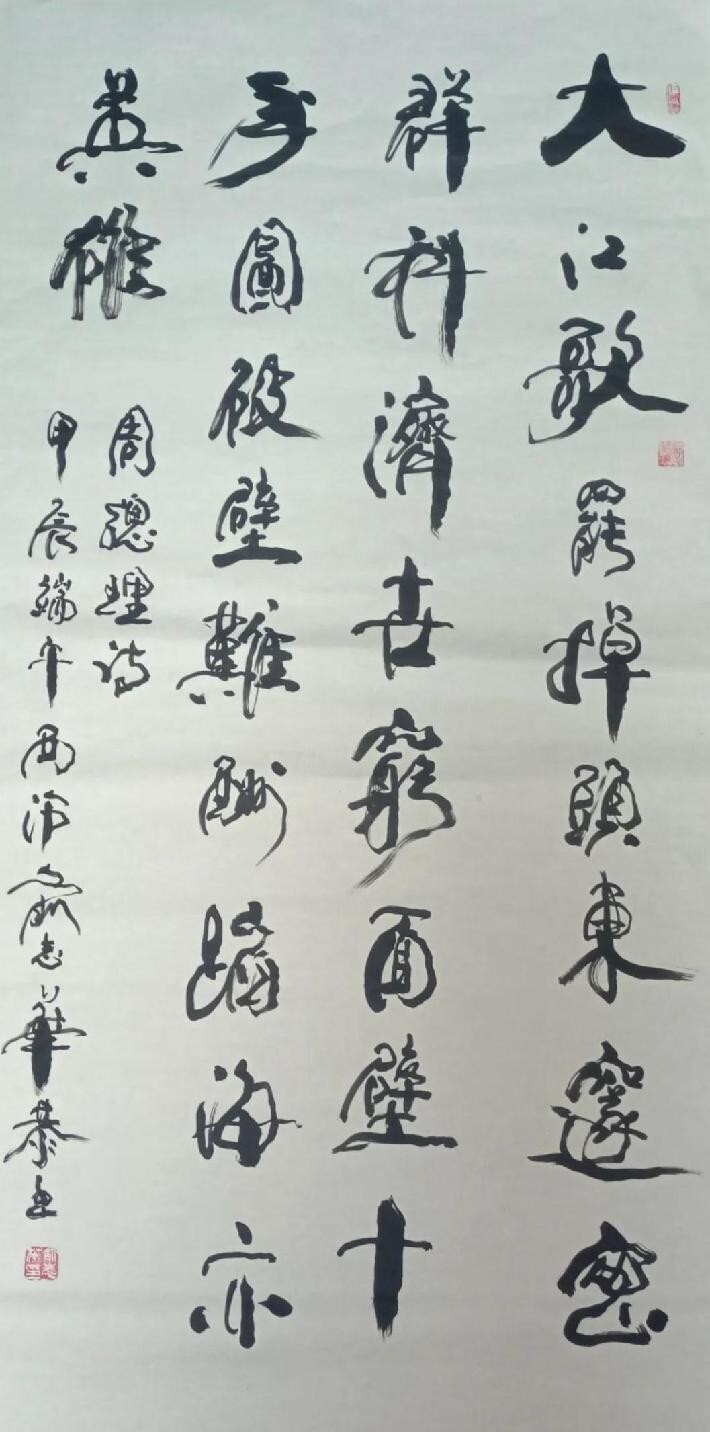 大江歌罷掉頭東邃密
群科濟世窮面壁十
年圖破壁難酬蹈海亦
英雄
周總理詩
甲辰端午志華恭書